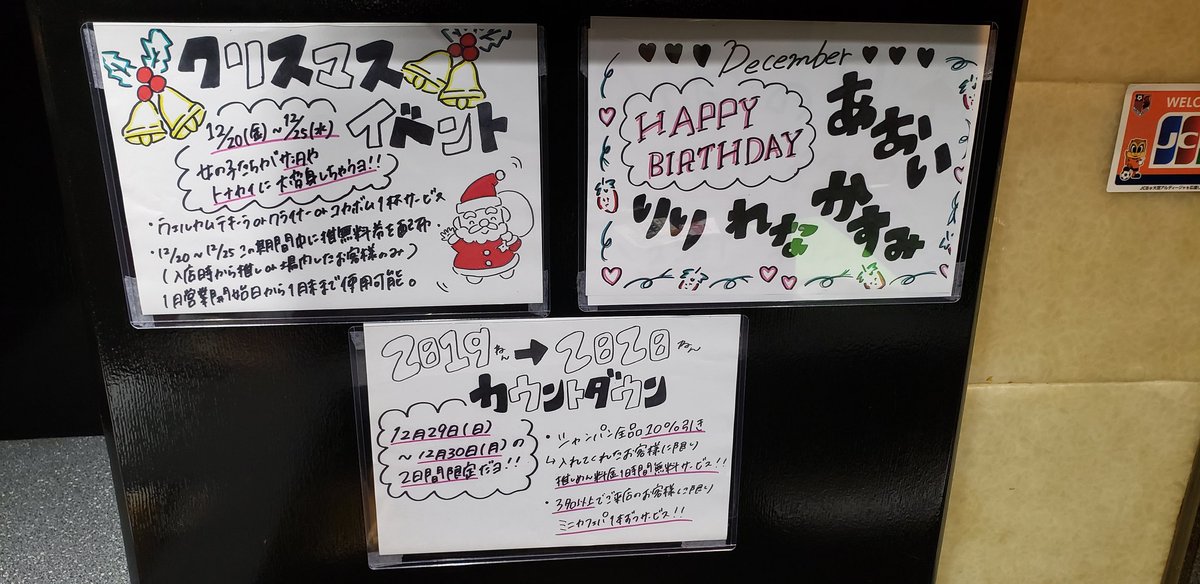 クリスマス
イベント
12/20(金)~12/25(水)
女の子たちがサンタや
トナカイに大変身しちゃうヨ!!
・ウェルカムテキーラorクライナーorコカボム1杯サービス
・12/20~12/25この期間中に推無料券を配布。
(入店時から推しor場内したお客様のみ)
1月営業開始日から1月末まで使用可能。
December
HAPPY
BIRTHDAY
あおい
りり れな かすみ
2019ねん→2020ねん
カウントダウン
12月29日(日)
~12月30日(月)の
2日間限定だヨ!!
・シャンパン全品10%引き
↳入れてくれたお客様に限り
推しめん料金1時間無料サービス!!
・3名以上でご来店のお客様に限り
ミニカフェパ1本ずつサービス!!
WELC
JC